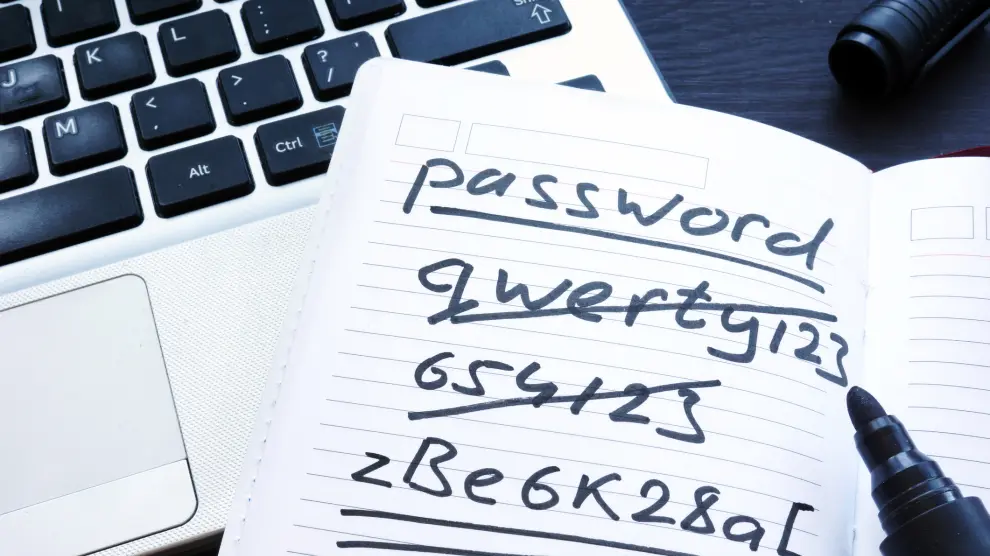 J
K
L
:
;
M
<
,
>
.
?
/
"
'
Shift
Alt
Ctrl
password
qwerty123
654123
zBe6K28a[